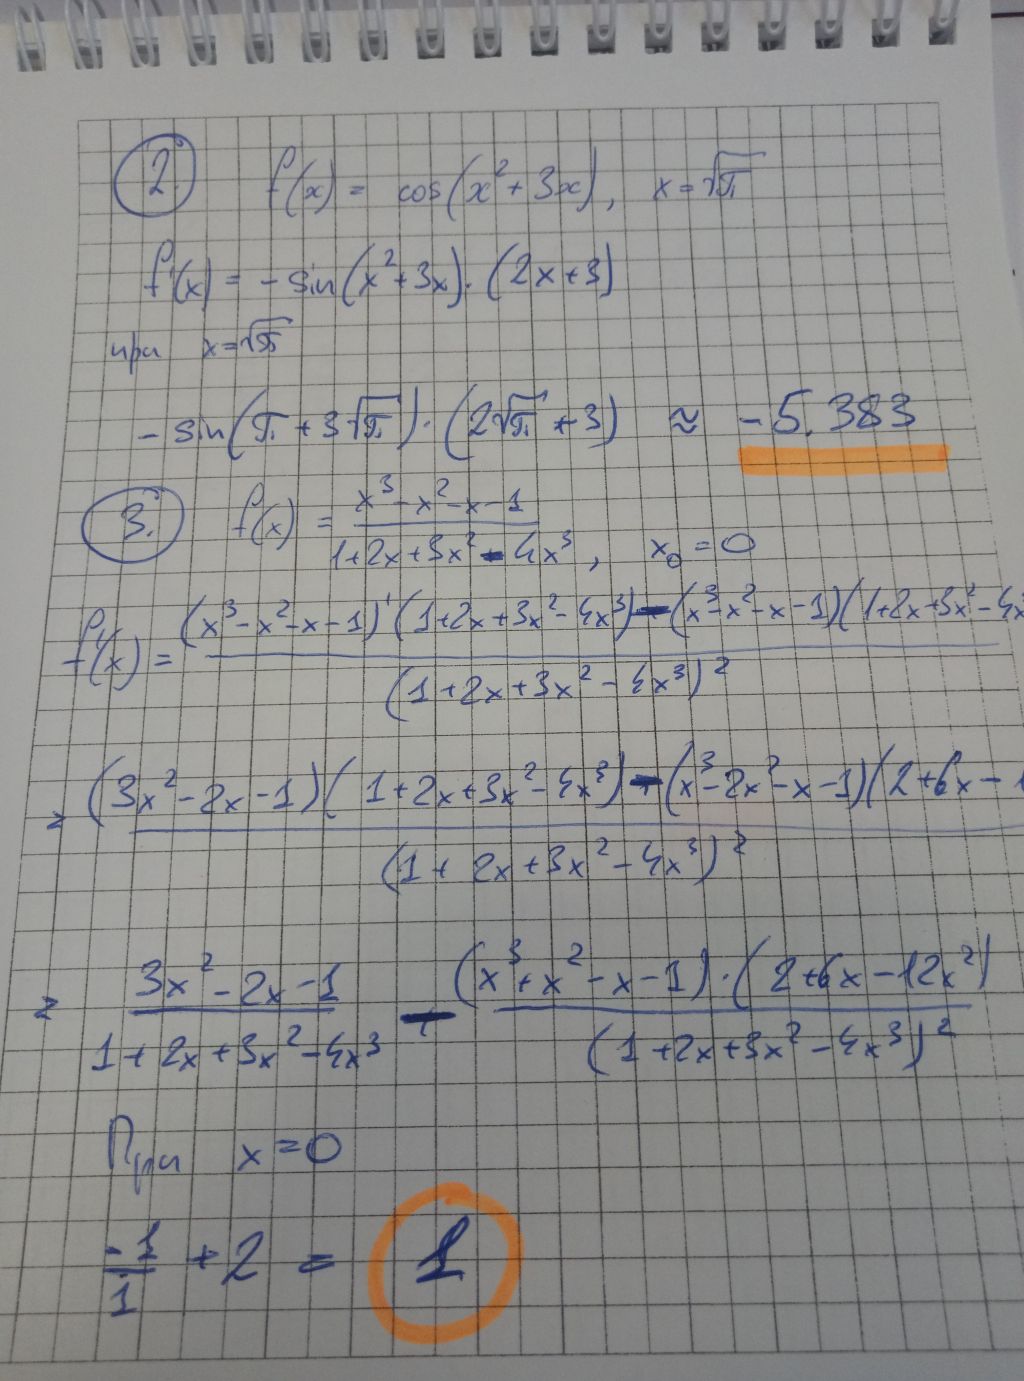 2. f(x) = cos(x² + 3x), x = √π
f'(x) = - sin(x² + 3x) · (2x + 3)
при x = √π
- sin(π + 3√π) · (2√π + 3) ≈ - 5.383
3. f(x) = (x³ - x² - x - 1) / (1 + 2x + 3x² - 4x³), x₀ = 0
f'(x) = ((x³ - x² - x - 1)' (1 + 2x + 3x² - 4x³) - (x³ - x² - x - 1)(1 + 2x + 3x² - 4x³ / (1 + 2x + 3x² - 4x³)²
= ((3x² - 2x - 1)(1 + 2x + 3x² - 4x³) - (x³ - 2x² - x - 1)(2 + 6x - 1 / (1 + 2x + 3x² - 4x³)²
= (3x² - 2x - 1) / (1 + 2x + 3x² - 4x³) - (x³ + x² - x - 1) · (2 + 6x - 12x²) / (1 + 2x + 3x² - 4x³)²
При x = 0
-1 / 1 + 2 = 1